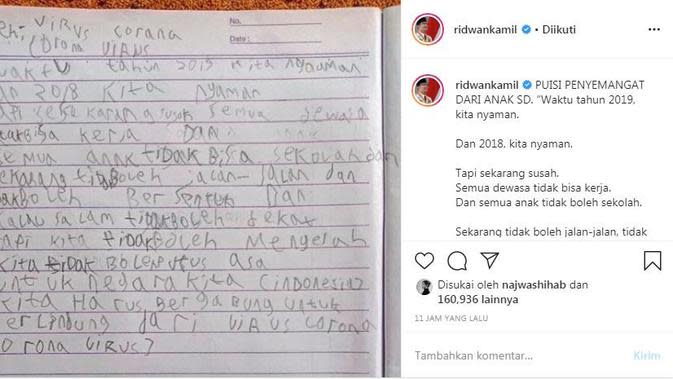 No.
Date:
eh: VIRUS corona
(Corona VIRUS
tahun 2019 kita nyaman
an 2018 kita nyaman
api sekarang susah semua dewasa
takbisa kerja Dan
semua anak tidak Bisa sekolah dan
ekarang tidboleh jalan-jalan dan
dakboleh Bersentuh Dan
kalau salam tidakboleh dekat
api kita tidakBoleh Menyerah
kita tidak Bolehputus asa
untuk negara kita (indonesia)
kita Harus Bergabung untuk
erlindung dari VIRUS corona
orona VIRUS)
ridwankamil • Diikuti
ridwankamil PUISI PENYEMANGAT
DARI ANAK SD. "Waktu tahun 2019.
kita nyaman.
Dan 2018. kita nyaman.
Tapi sekarang susah.
Semua dewasa tidak bisa kerja.
Dan semua anak tidak boleh sekolah.
Sekarang tidak boleh jalan-jalan, tidak
Disukai oleh najwashihab dan
160,936 lainnya
11 JAM YANG LALU
Tambahkan komentar...
Kirim